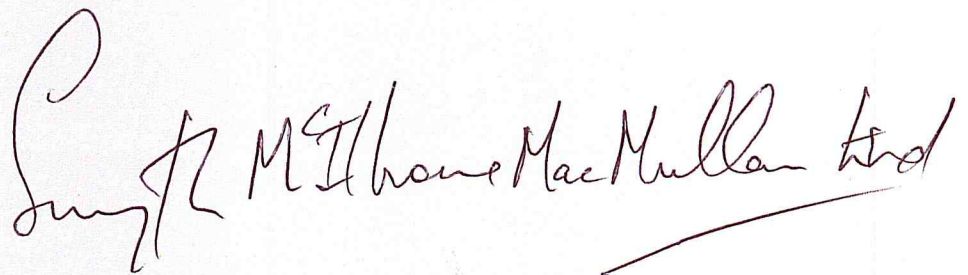 Smyth McIlhrone MacMullan Ltd